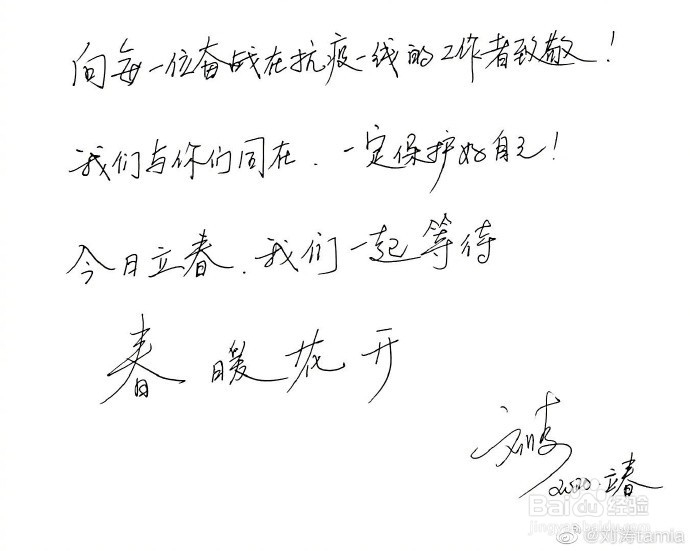 向每一位奋战在抗疫一线的工作者致敬！
我们与你们同在，一定保护好自己！
今日立春，我们一起等待
春暖花开
刘涛
2020.立春
Baidu经验
jingyan.baidu.com
@刘涛tamia